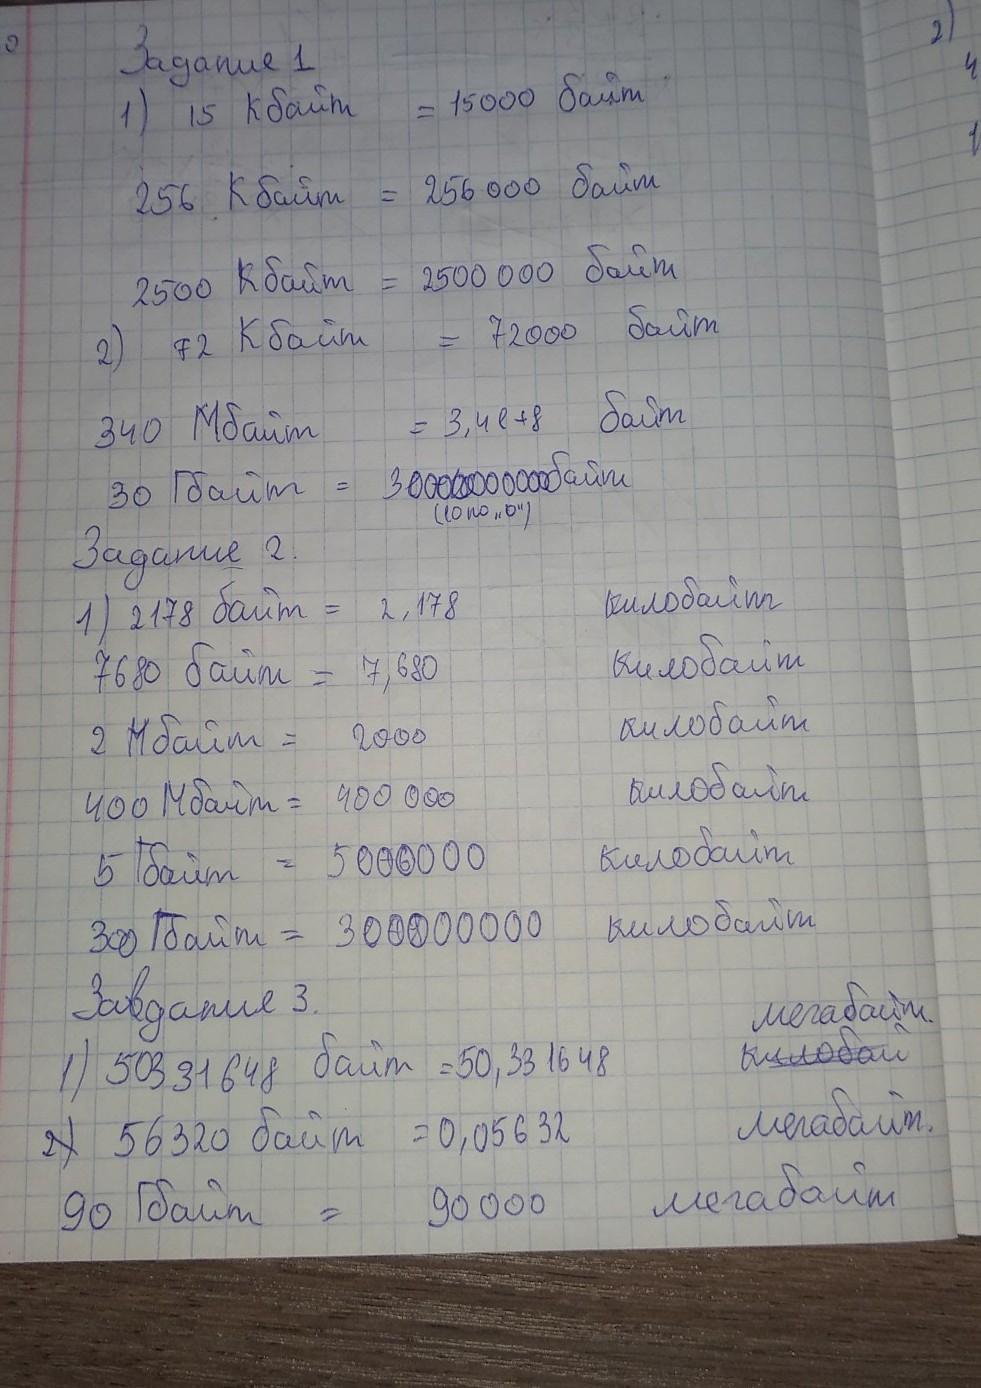 Задание 1
1) 15 Кбайт = 15000 байт
256 Кбайт = 256 000 байт
2500 Кбайт = 2500 000 байт
2) 72 Кбайт = 72000 байт
340 Мбайт = 3,4e+8 байт
30 Гбайт = 30000000000байт
(10 по „0")
Задание 2.
1) 2178 байт = 2,178 килобайт
7680 байт = 7,680 килобайт
2 Мбайт = 2000 килобайт
400 Мбайт = 400 000 килобайт
5 Гбайт = 5000000 килобайт
300 Гбайт = 300000000 килобайт
Завдание 3.
мегабайт.
1) 50331648 байт = 50,331648 килобай
2) 56320 байт = 0,05632 мегабайт.
90 Гбайт = 90 000 мегабайт
2)
4
1